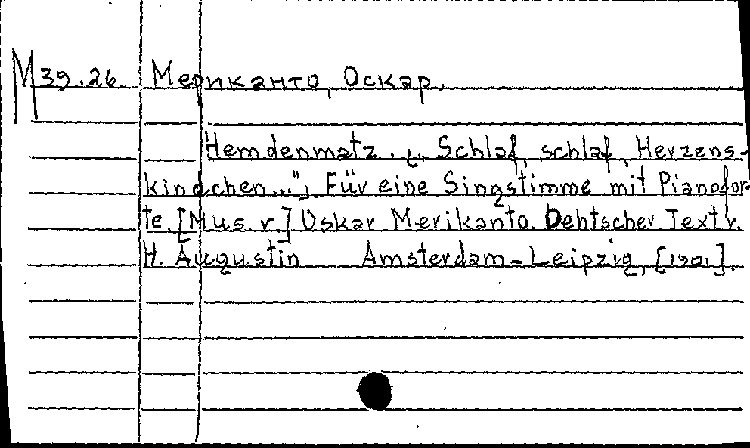 М 39.26 Мериканто, Оскар.
Hemdenmatz. „Schlaf, schlaf, Herzens-
kindchen..."; Für eine Singstimme mit Pianofor-
te. [Mus. v.] Oskar Merikanto. Dehtscher Text v.
H. Augustin Amsterdam-Leipzig, [1901].